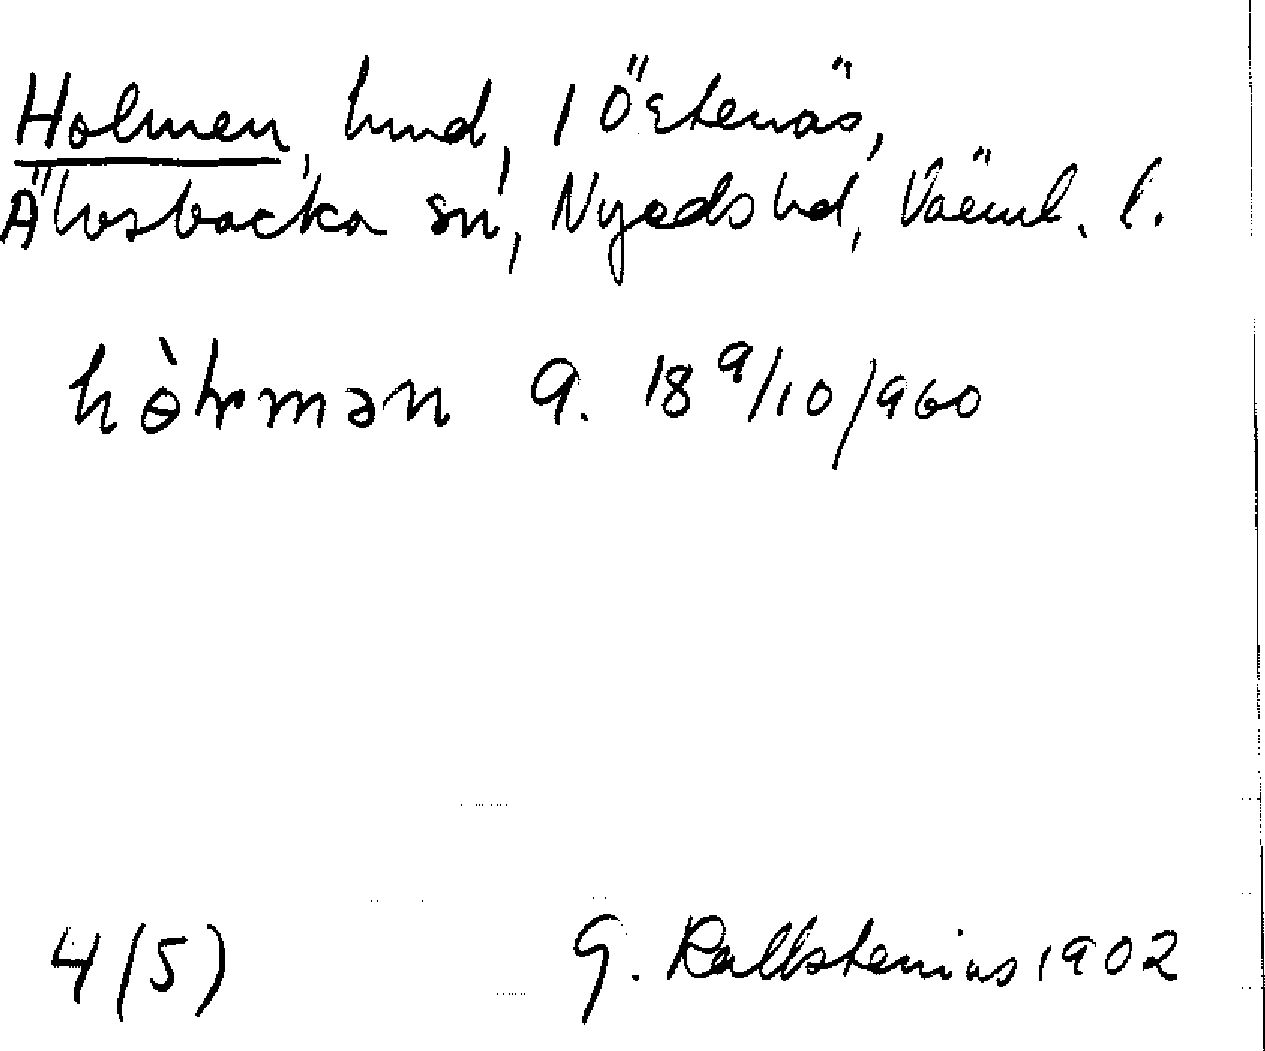 Holmen, hmd, i Östenäs,
Älvsbacka sn, Nyeds hd, Värml. l.
hòłmən 9. 18 9/10/960
4(5) G. Kallstenius 1902